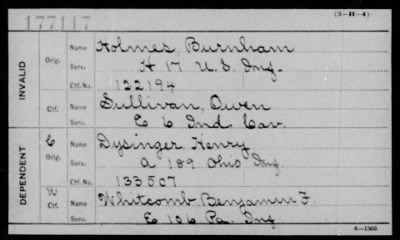 177117
(3-H-4)
INVALID
Orig. Name Holmes, Burnham
Serv. H 17 U.S. Inf.
Ctf. No. 122194
Ctf. Name Sullivan, Owen
Serv. E 6 Ind Cav.
DEPENDENT
C Orig. Name Dysinger, Henry
Serv. A 189 Ohio Inf
Ctf. No. 133507
W Ctf. Name Whitcomb Benjamin F.
Serv. E 106 Pa. Inf
6-1305